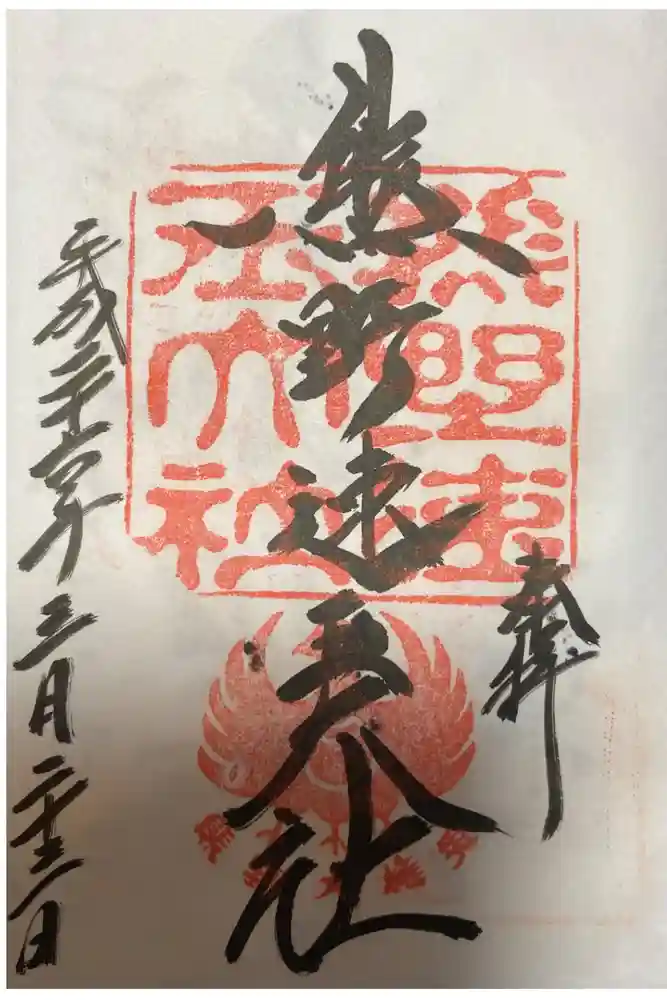 奉拝
熊野速玉大社
熊野速
玉大社
平成二十六年三月二十三日